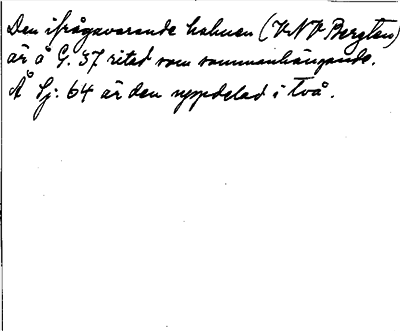 Den ifrågavarande holmen (V-NV Bergten)
är å G. 37 ritad som sammanhängande.
Å Sj: 64 är den uppdelad i två.